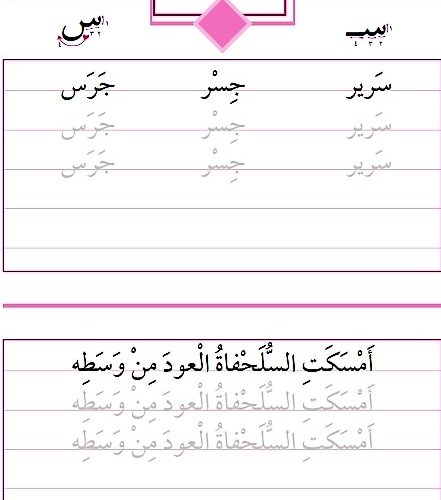 سـ س
١ ٢ ٣ ٤ ١ ٢ ٣ ٤
سَرير جِسْر جَرَس
سَرير جِسْر جَرَس
سَرير جِسْر جَرَس
أَمْسَكَتِ السُّلَحْفاةُ الْعودَ مِنْ وَسَطِه
أَمْسَكَتِ السُّلَحْفاةُ الْعودَ مِنْ وَسَطِه
أَمْسَكَتِ السُّلَحْفاةُ الْعودَ مِنْ وَسَطِه